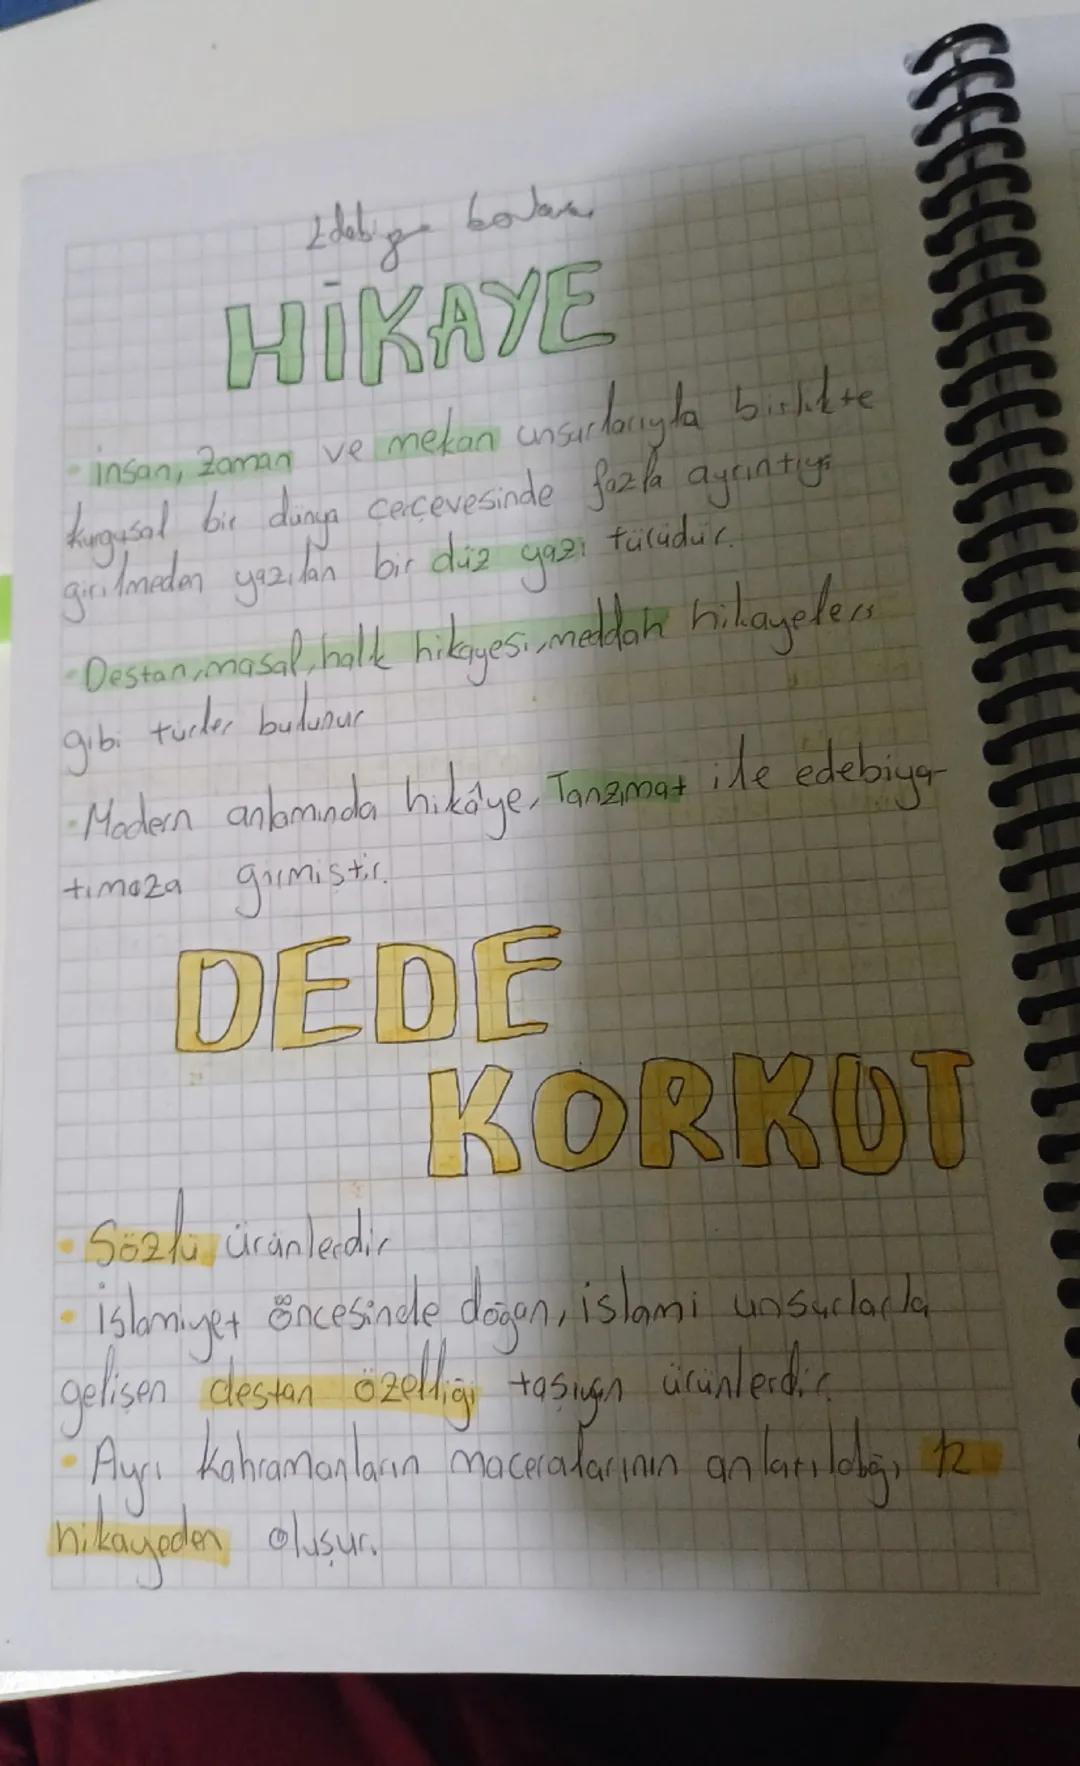 HİKAYE
• insan, zaman ve mekan unsurlarıyla birlikte
kurgusal bir dünya çerçevesinde fazla ayrıntıya
girilmeden yazılan bir düz yazı türüdür.
• Destan, masal, halk hikayesi, meddah hikayeleri
gibi türler bulunur
• Modern anlamında hikâye, Tanzimat ile edebiya-
tımıza girmiştir.
DEDE
KORKUT
• Sözlü ürünlerdir
• islamiyet öncesinde doğan, islami unsurlarla
gelişen destan özelliği taşıyan ürünlerdir.
• Ayrı kahramanların maceralarının anlatıldığı 12
hikayeden oluşur.